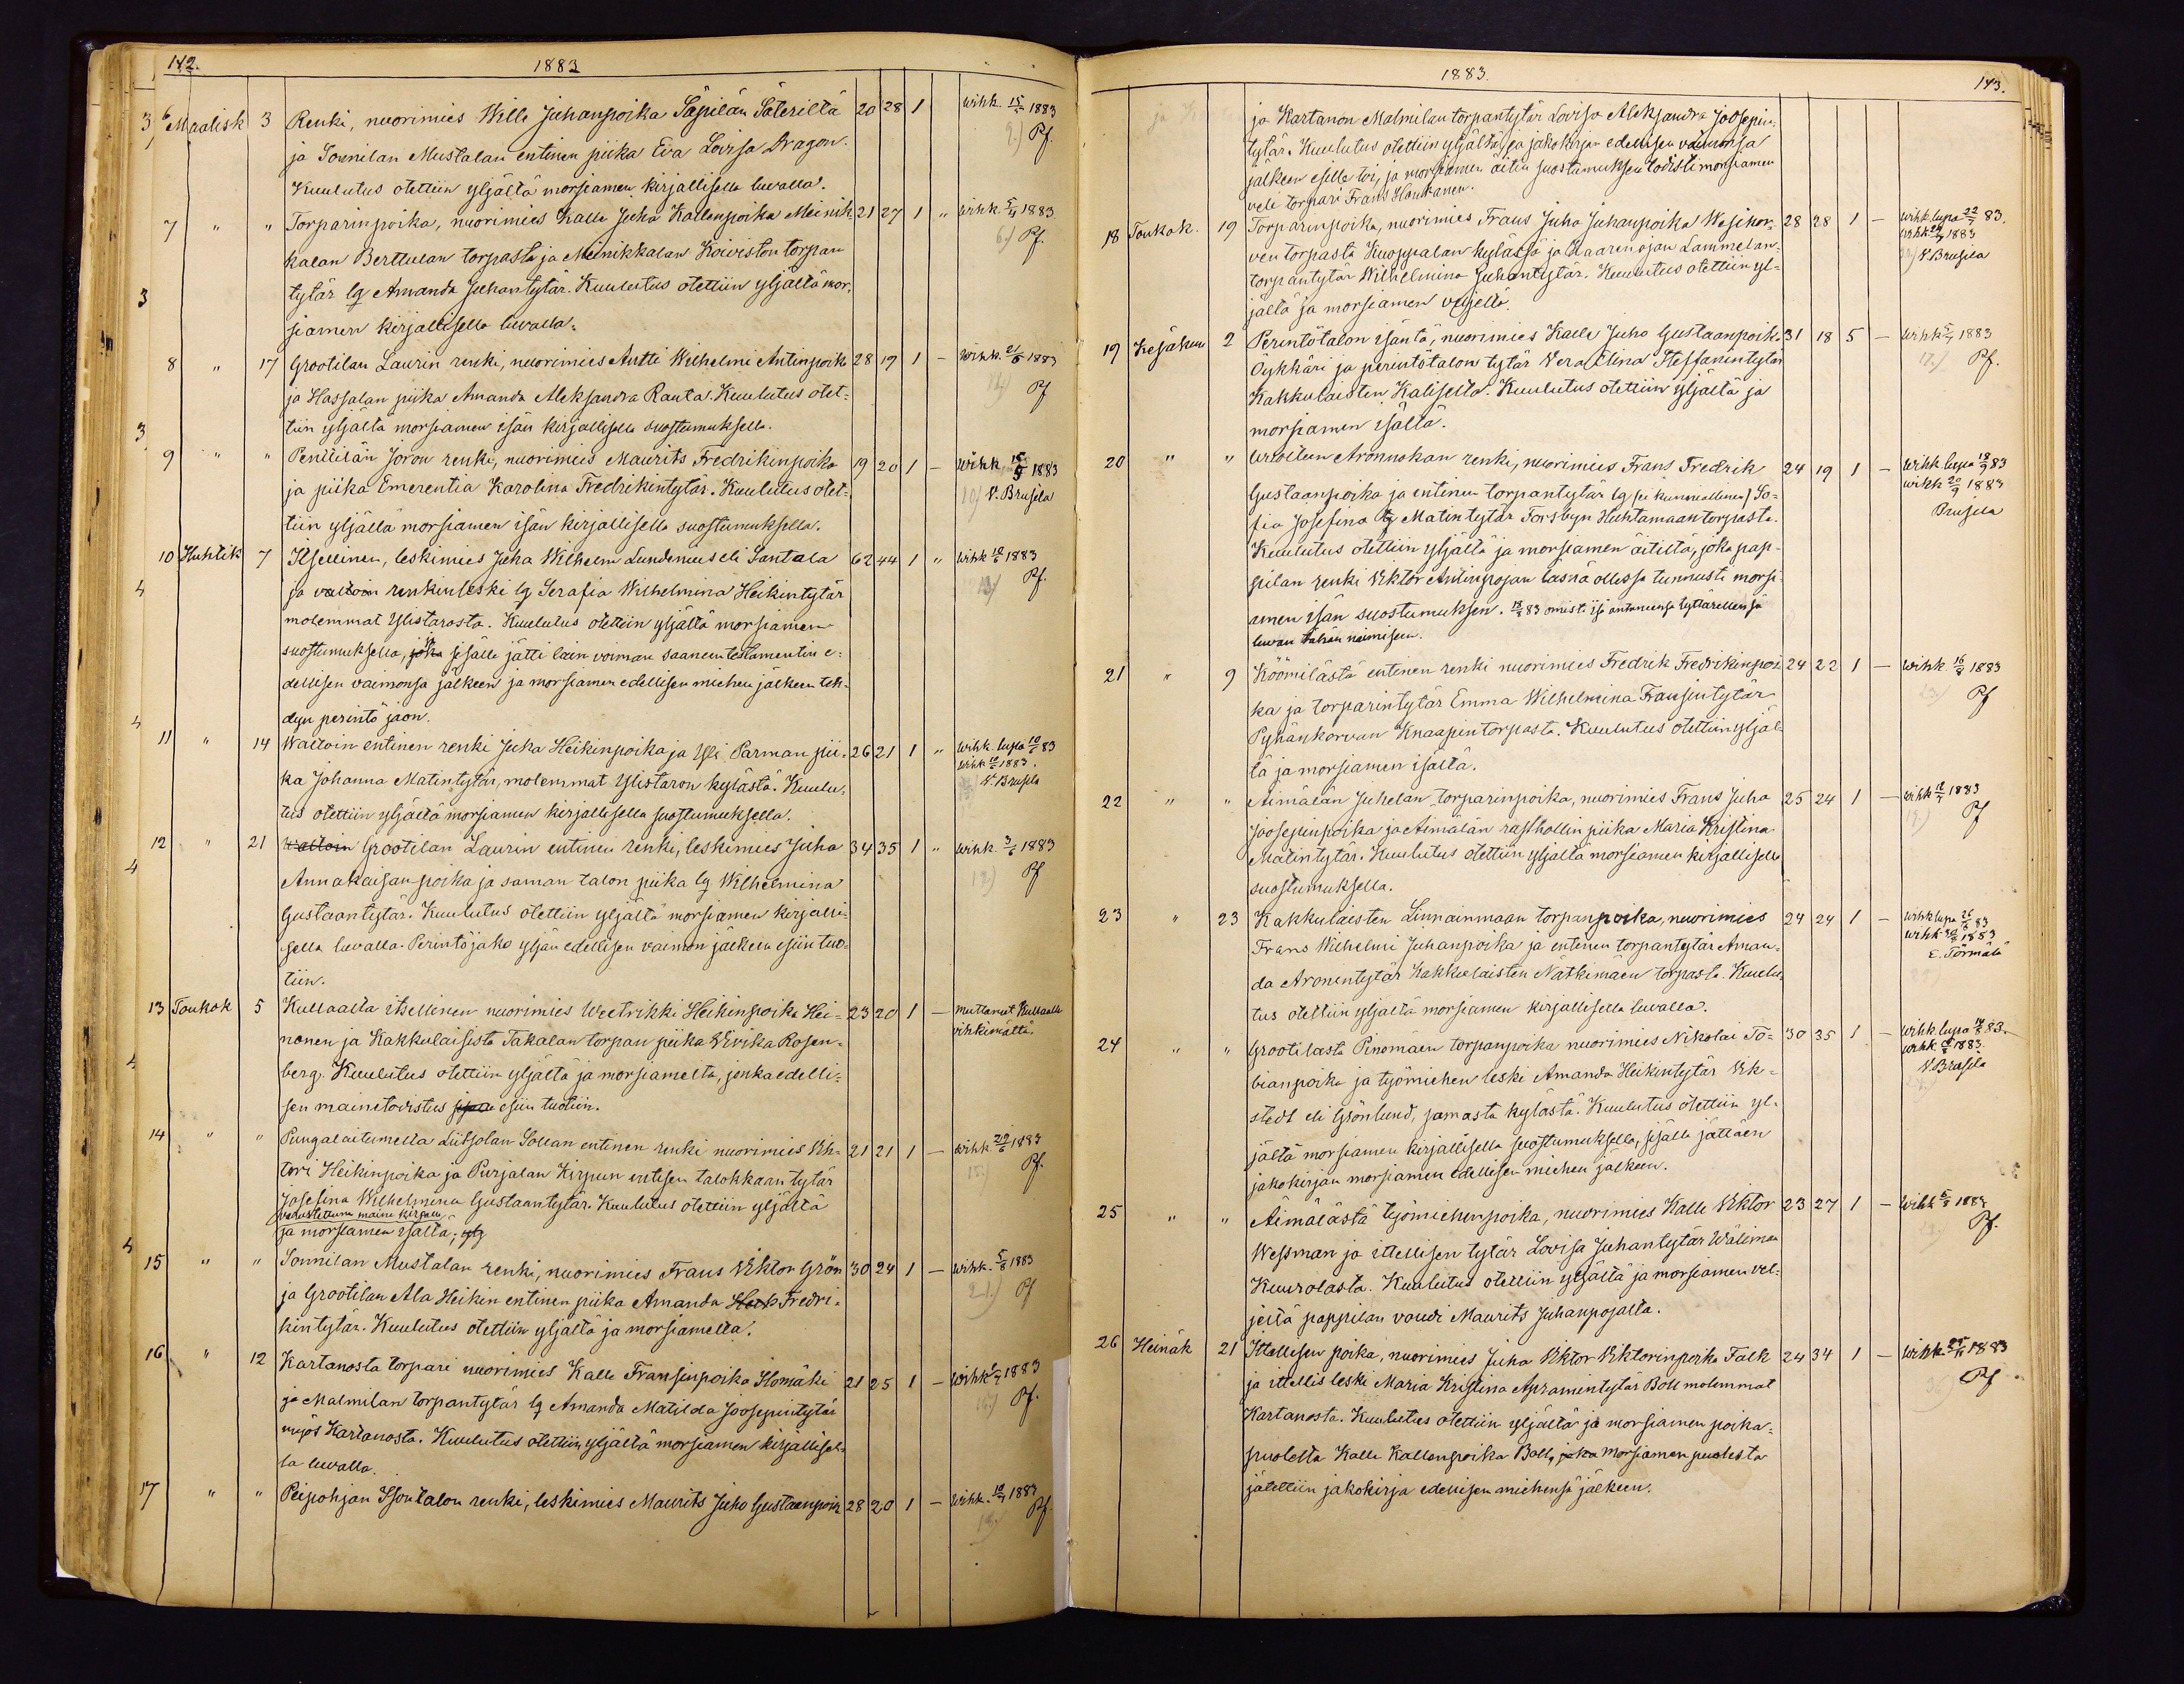 142.
1883
6 Maalisk 3 Renki, nuorimies Wille Juhanpoika Säpilän Säteriltä 20 28 1 wihk. 15/4 1883
ja Sonnilan Mustalan entinen piika Eva Lovisa Dragon. 9.) Pf.
Kuulutus otettiin yljältä morsiamen kirjallisella luvalla.
7 " " Torparinpoika, nuorimies Kalle Juha Kallenpoika Meinik 21 27 1 " wihk. 5/4 1883
kalan Berttulan torpasta ja Meinikkalan Koiviston torpan 6.) Pf.
tytär lg Amanda Juhantytär. Kuulutus otettiin yljältä mor-
siamen kirjallisella luvalla.
8 " 17 Grootilan Laurin renki, nuorimies Antti Wilhelmi Antinpoika 28 19 1 – wihk. 2/6 1883
ja Hassalan piika Amanda Aleksandra Ranta. Kuulutus otet- Pf
tiin yljältä morsiamen isän kirjallisella suostumuksella.
9 " " Penttilän Joron renki, nuorimies Maurits Fredrikinpoika 19 20 1 – wihk 1883
ja piika Emerentia Karolina Fredrikintytär. Kuulutus otet- 10) V. Brusila
tiin yljältä morsiamen isän kirjallisella suostumuksella.
10 Huhtik 7 Itsellinen, leskimies Juha Wilhelm Lundenius eli Santala 62 44 1 " wihk 10/6 1883
ja valtoin renkinleski lg Serafia Wilhelmina Heikintytär 13) Pf.
molemmat Ylistarosta. Kuulutus otettiin yljältä morsiamen
suostumuksella, joka sisälle jätti lain voiman saaneen testamentin e-
dellisen vaimonsa jälkeen ja morsiamen edellisen miehen jälkeen teh-
dyn perintö jaon.
11 " 14 Waltoin entinen renki Juha Heikinpoika ja Yli Parman pii- 26 21 1 " wihk. lupa 10/6 83
ka Johanna Matintytär, molemmat Ylistaron kylästä. Kuulu- wihk 1883. V. Brusila
tus otettiin yljältä morsiamen kirjallisella suostumuksella.
12 " 21 Waltoin Grootilan Laurin entinen renki, leskimies Juha 34 35 1 " wihk. 3/6 1883
Annakaisanpoika ja saman talon piika lg Wilhelmina 12) Pf
Gustaantytär. Kuulutus otettiin yljältä morsiamen kirjalli-
sella luvalla. Perintöjako yljän edellisen vaimon jälkeen esiin tuo-
tiin.
13 Toukok 5 Kullaalta itsellinen nuorimies Weetrikki Heikinpoika Hei- 23 20 1 – muttaneet Kullaalle
nonen ja Kakkulaisista Takalan torpan piika Wivika Rosen- vihkimättä.
berg. Kuulutus otettiin yljältä ja morsiamelta, jonka edelli-
sen mainetodistus esiin tuotiin.
14 " " Pungalaitumella Liitsolan Sollan entinen renki nuorimies Vik- 21 21 1 – wihk. 29/6 1883
tori Heikinpoika ja Purjalan Kirpun entisen talokkaan tytär 15.) Pf.
Josefina Wilhelmina Gustaantytär. Kuulutus otettiin yljältä
varustettuna maine kirjalla
ja morsiamen isältä;
15 " " Sonnilan Mustalan renki, nuorimies Frans Viktor Grön 30 24 1 – wihk. 5/8 1883
ja Grootilan Ala Heikin entinen piika Amanda Heik Fredri- 21.) Pf
kintytär. Kuulutus otettiin yljältä ja morsiamelta.
16 " 12 Kartanosta torpari nuorimies Kalle Fransinpoika Isomäki 21 25 1 – wihk 1883
ja Malmilan torpantytär lg Amanda Matilda Joosepintytär 16.) Pf.
myös Kartanosta. Kuulutus otettiin yljältä morsiamen kirjallisel-
la luvalla.
17 " " Peipohjan Isontalon renki, leskimies Maurits Juho Gustaanpoika 28 20 1 – wihk. 1883
Pf.
1883.
143.
ja Kartanon Malmilan torpantytär Lovisa Aleksandra Joosepin-
tytär. Kuulutus otettiin yljältä, ja jakokirjan edellisen vaimonsa
jälkeen esille toi, ja morsiamen äitin suostumuksen todisti morsiamen
veli torpari Frans Haukanen.
18 Toukok. 19 Torparinpoika, nuorimies Frans Juho Juhanpoika Wesikor- 28 28 1 – wihk. lupa 22/7 83.
ven torpasta Kuoppalan kylässä ja Haarinojan Lammelan- wihk. 1883
torpantytär Wilhelmina Juhantytär. Kuulutus otettiin yl- V. Brusila
jältä ja morsiamen veljeltä.
19 Kesäkuu 2 Perintötalon isäntä, nuorimies Kalle Juho Gustaanpoika 31 18 5 – wihk 1883
Öykkäri ja perintötalon tytär Vera Elina Steffanintytär 17.) Pf.
Kakkulaisten Kalisesta. Kuulutus otettiin yljältä ja
morsiamen isältä.
20 " " Aronnokan renki, nuorimies Frans Fredrik 24 19 1 – wihk. lupa 18/9 83
Gustaanpoika ja entinen torpantytär lg (ei kunniallinen) So- wihk 20/9 1883
fia Josefina lg Matintytär Forsbyn Huhtamaan torpasta. Brusila
Kuulutus otettiin yljältä ja morsiamen äitiltä, joka pap-
pilan renki Viktor Antinpojan läsnä ollessa tunnusti morsi-
amen isän suostumuksen. 83 omisti isä antaneensa tyttärellensä
luvan tähän naimiseen.
21 " 9 Köömilästä entinen renki nuorimies Fredrik Fredrikinpoi- 24 22 1 – wihk 16/9 1883
ka ja torparintytär Emma Wilhelmina Fransintytär 23.) Pf
Pyhänkorvan Knaapin torpasta. Kuulutus otettiin yljäl-
tä ja morsiamen isältä.
22 " " Äimälän Juhelan torparinpoika, nuorimies Frans Juha 25 24 1 – wihk 1883
Joosepinpoika ja Äimälän rusthollin piika Maria Kristina 19.) Pf
Matintytär. Kuulutus otettiin yljältä morsiamen kirjallisella
suostumuksella.
23 " 23 Kakkulaisten Linnainmaan torpanpoika, nuorimies 24 24 1 – wihk lupa 26/8 83
Frans Wilhelmi Juhanpoika ja entinen torpantytär Aman- wihk 1883
da Aronintytär Kakkulaisten Nätkimäen torpasta. Kuulu- E. Törmälä
tus otettiin yljältä morsiamen kirjallisella luvalla.
24 " " Grootilasta Pinomäen torpanpoika nuorimies Nikolai To- 30 35 1 – wihk. lupa 83.
bianpoika ja työmiehen leski Amanda Heikintytär Vik- wihk. 1883.
stedt eli Grönlund, samasta kylästä. Kuulutus otettiin yl- V. Brusila
jältä morsiamen kirjallisella suostumuksella, sisälle jättäen
jakokirjan morsiamen edellisen miehen jälkeen.
25 " " Äimälästä työmiehenpoika, nuorimies Kalle Viktor 23 27 1 – wihk 1883
Wessman ja ittellisen tytär Lovisa Juhantytär Wäliman Pf.
Kuurolasta. Kuulutus otettiin yljältä ja morsiamen vel-
jeltä pappilan voudi Maurits Juhanpojalta.
26 Heinäk 21 Ittellisen poika, nuorimies Juha Viktor Viktorinpoika Falk 24 34 1 – wihk. 25/11 1883
ja ittellis leski Maria Kristina Apramintytär Boll molemmat Pf
Kartanosta. Kuulutus otettiin yljältä ja morsiamen poika-
puolelta Kalle Kallenpoika Boll, joka morsiamen puolesta
jätettiin jakokirja edellisen miehensä jälkeen.